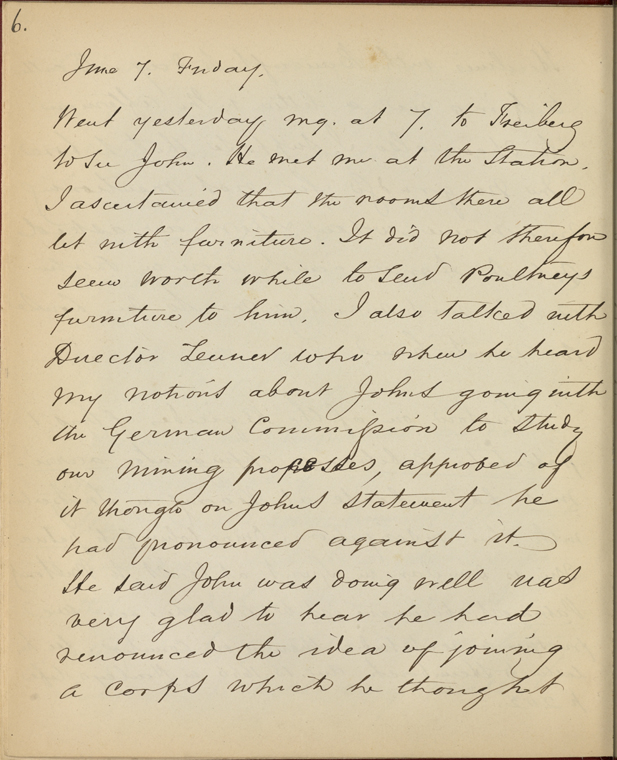 6.
June 7. Friday.
Went yesterday mg. at 7. to Freiberg
to see John. He met me at the Station.
I ascertained that the rooms there all
let with furniture. It did not therefore
seem worth while to send Poultneys
furniture to him. I also talked with
Director Zeuner who when he heard
my notions about Johns going with
the German Commission to study
our mining processes, approved of
it though on Johns statement he
had pronounced against it.
He said John was doing well was
very glad to hear he had
renounced the idea of joining
a Corps which he thought